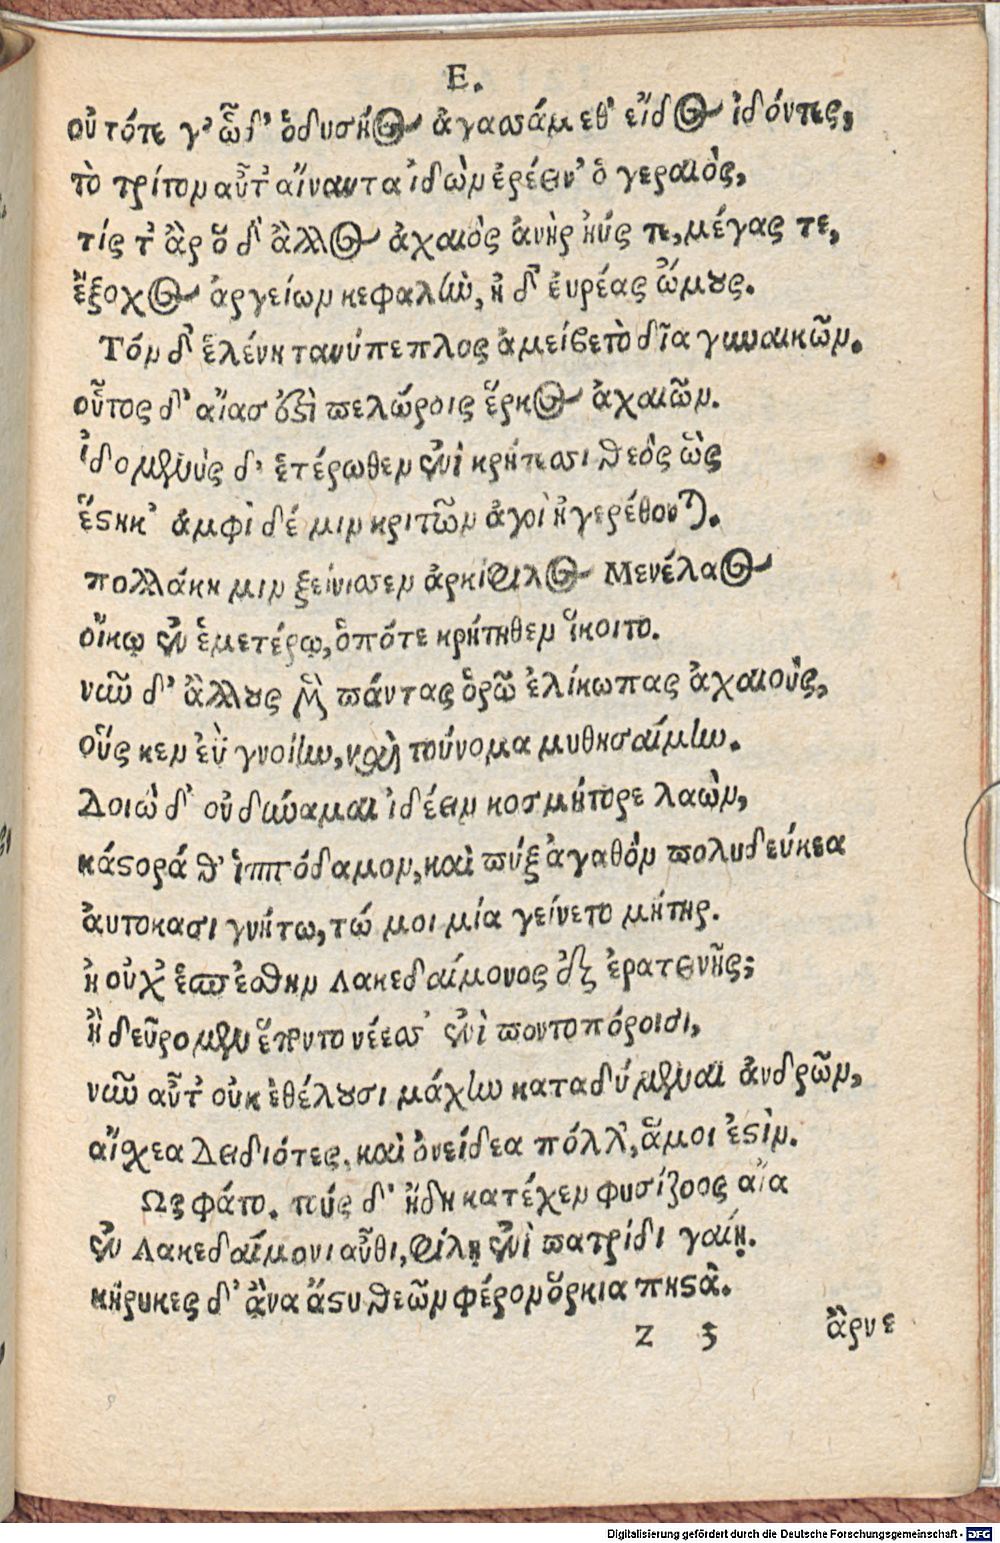 Ε.
οὐ τότε γ’ ὧδ’ ὀδυσῆος ἀγασσάμεθ’ εἶδος ἰδόντες,
τὸ τρίτον αὖτ’ αἴαντα ἰδὼν ἐρέειν’ ὁ γεραιὸς,
τίς τ’ ἂρ ὅ δ’ ἄλλος ἀχαιὸς ἀνὴρ ἠύς τε, μέγας τε,
ἔξοχος ἀργείων κεφαλὴν, ἠ δ’ ἐυρέας ὤμους.
Τόν δ’ ἑλένη τανύπεπλος ἀμείβετο δῖα γυναικῶν.
οὗτος δ’ αἴας ἐστὶ πελώριος ἕρκος ἀχαιῶν.
ἰδομενεὺς δ’ ἑτέρωθεν ἐνὶ κρήτεσσι θεὸς ὣς
ἕστηκ’ ἀμφὶ δέ μιν κριτῶν ἀγοὶ ἠγερέθονται.
πολλάκη μιν ξείνισσεν ἀρκίφιλος Μενέλαος
οἴκῳ ἐν ἡμετέρῳ, ὁπότε κρήτηθεν ἵκοιτο.
νῦν δ’ ἄλλους μὲν πάντας ὁρῶ ἑλίκωπας ἀχαιοὺς,
οὕς κεν ἐῢ γνοίην, καὶ τούνομα μυθησαίμην.
Δοιὼ δ’ οὐ δύναμαι ἰδέειν κοσμήτορε λαῶν,
κάστορά θ’ ἱππόδαμον, καὶ πύξ ἀγαθὸν πολυδεύκεα
ἀυτοκασιγνήτω, τώ μοι μία γείνετο μήτηρ.
ἠ οὐχ’ ἑσπέσθην Λακεδαίμονος ἐξ ἐρατεινῆς;
ἢ δεῦρο μὲν ἕποντο νέεσσ’ ἐνὶ ποντοπόροισι,
νῦν αὖτ’ οὐκ ἐθέλουσι μάχην καταδύμεναι ἀνδρῶν,
αἴσχεα Δειδιότες, καὶ ὀνείδεα πόλλ’, ἅμοι ἐστὶν.
Ως φάτο. τούς δ’ ἤδη κατέχεν φυσίζοος αἶα
ἐν Λακεδαίμονι αὖθι, φίλῃ ἐνὶ πατρίδι γαίῃ.
κήρυκες δ’ ἄνα ἄστυ θεῶν φέρον ὅρκια πιστὰ.
z 3 ἄρνε
Digitalisierung gefördert durch die Deutsche Forschungsgemeinschaft - DFG